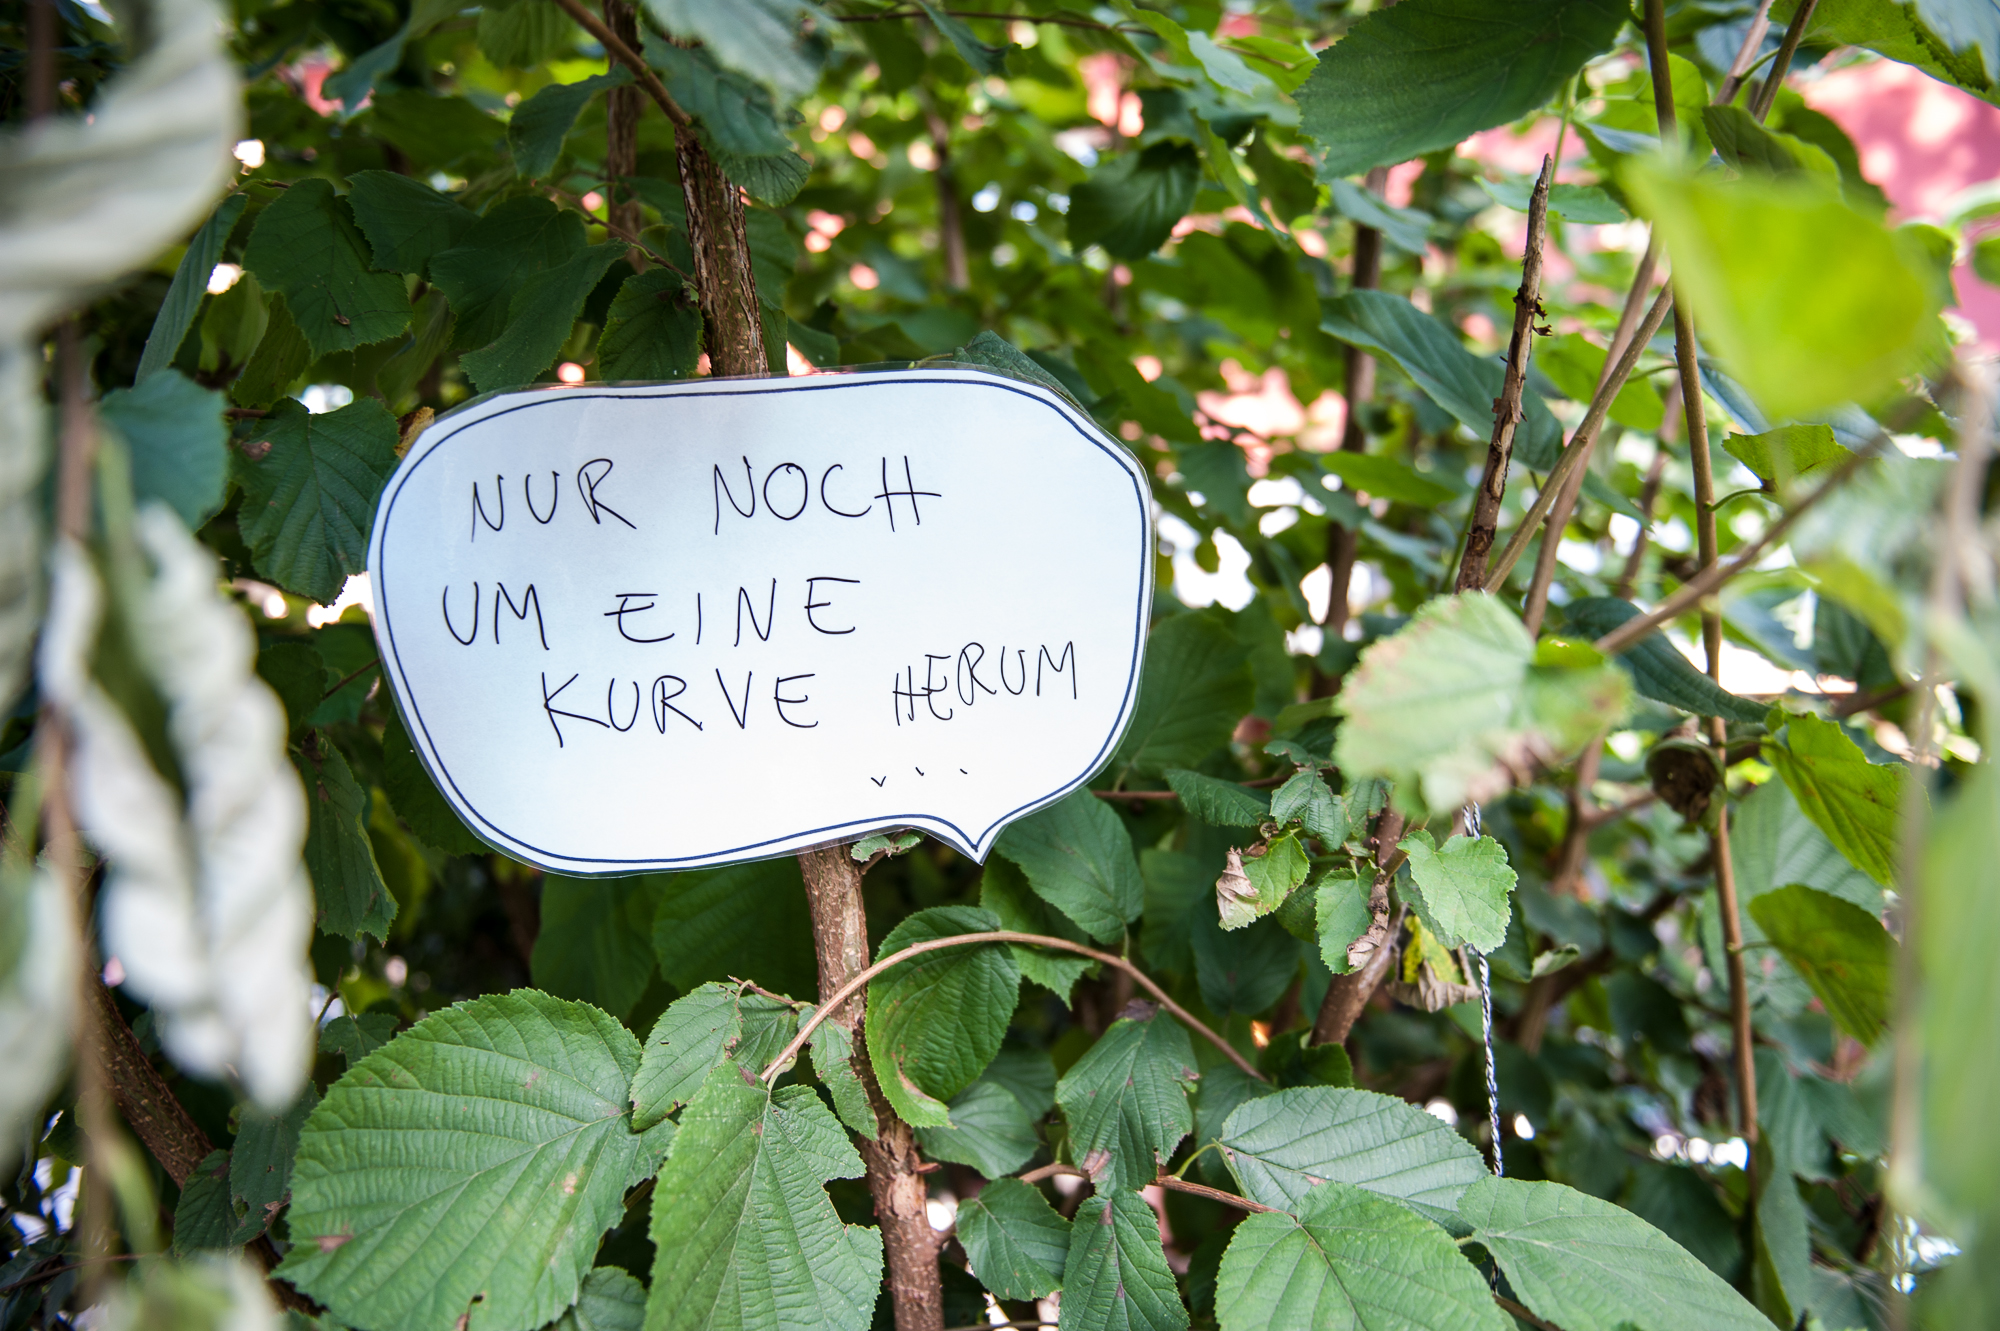 NUR NOCH
UM EINE
KURVE HERUM
...